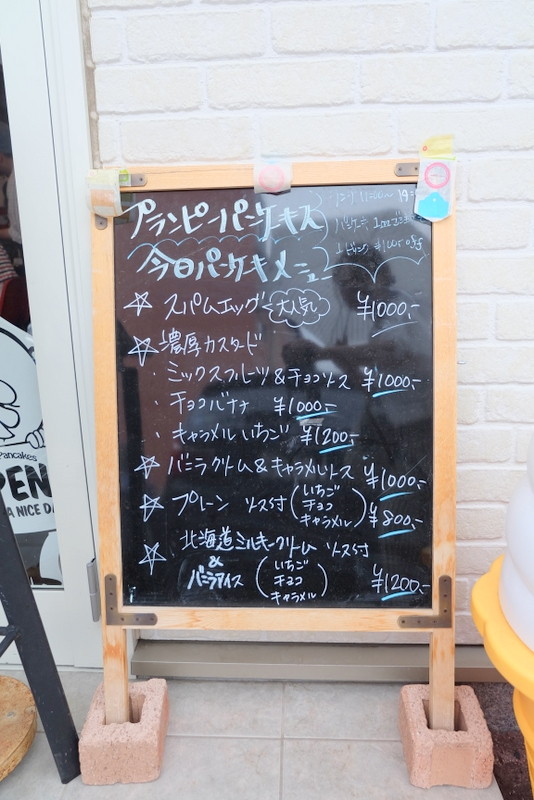 プランピーパンケーキス
今日パンケーキメニュー
☆ スパムエッグ 大人気 ¥1000,-
☆ 濃厚カスタード
・ミックスフルーツ&チョコソース ¥1000,-
・チョコバナナ ¥1000,-
・キャラメルいちご ¥1200,-
☆ バニラクリーム&キャラメルソース ¥1000,-
☆ プレーン ソース付 (いちご チョコ キャラメル) ¥800,-
☆ 北海道ミルキークリーム ソース付
& バニラアイス (いちご チョコ キャラメル) ¥1200,-
Pancakes
PEN
A NICE DA